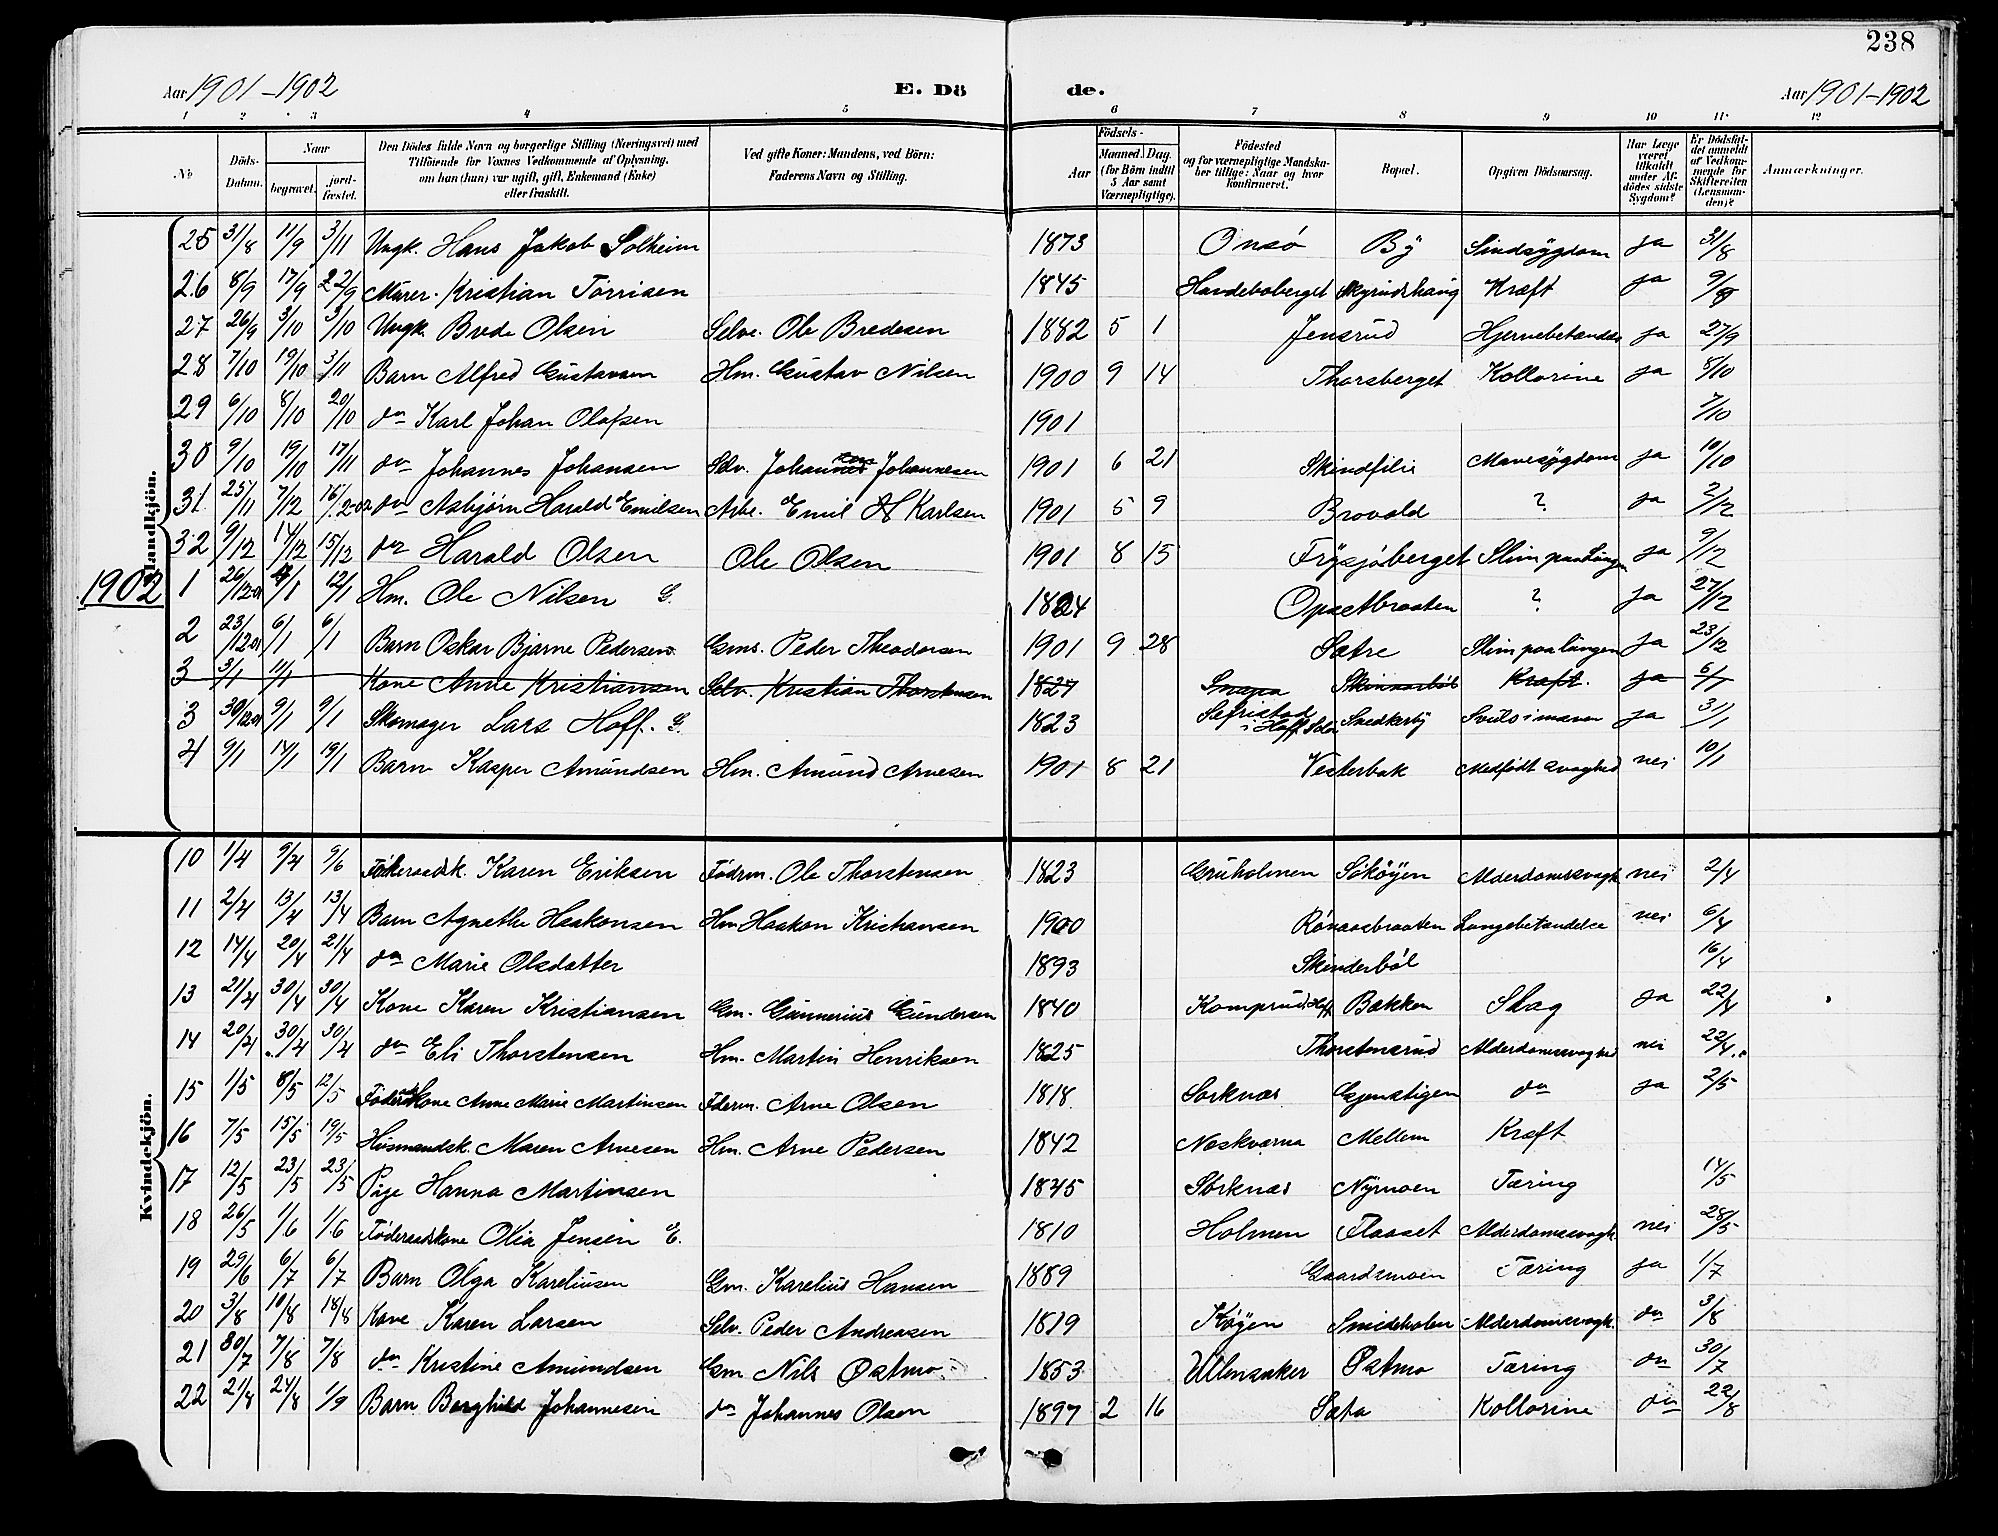 238
Aar 1901-1902 E. Dö de. Aar 1901-1902
1 2 3 4 5 6 7 8 9 10 11 12
No Döds-Datum. Naar begravet. jord-fæstet. Den Dödes fulde Navn og borgerlige Stilling (Næringsvei) med Tilföiende for Voxnes Vedkommende af Oplysning, om han (hun) var ugift, gift, Enkemand (Enke) eller fraskilt. Ved gifte Koner: Mandens, ved Börn: Faderens Navn og Stilling. Födsels- Aar Maaned. Dag. (for Börn indtil 5 Aar samt Værnepligtige). Födested og for værnepligtige Mandskaber tillige: Naar og hvor konfirmeret. Bopæl. Opgiven Dödsaarsag. Har Læge været tilkaldt under Afdödes sidste Sygdom? Er Dödsfaldet anmeldt af Vedkommende for Skifteretten (Lensmanden)? Anmærkninger.
Mandkjön.
25 31/8 11/9 3/11 Ungk. Hans Jakob Solheim 1873 Onsö By Sindsygdom ja 31/8
26 8/9 17/9 22/9 Murer. Kristian Torrisen 1845 Skyrudshaug Kræft ja 9/9
27 26/9 3/10 3/10 Ungk. Brede Olsen Selve. Ole Bredesen 1882 5 1 Jensrud Hjernebetændel ja 27/9
28 7/10 19/10 3/11 Barn Alfred Gustavsen Hm. Gustav Nilsen 1900 9 14 Thorsberget Kollorine ja 8/10
29 6/10 8/10 20/10 do Karl Johan Olafsen 1901 7/10
30 9/10 19/10 17/11 do Johannes Johansen Selv. Johan Johannesen 1901 6 21 Skindfilie Mavesygdom ja 10/10
31 25/11 7/12 16/2-02 do Asbjörn Harald Emilsen Arbe. Emil Karlsen 1901 5 9 Brovold ? ja 2/12
32 9/12 14/12 15/12 do Harald Olsen Ole Olsen 1901 8 15 Frysjöberget Slim paa lungen ja 9/12
1902
1 26/12-01 4/1 12/1 Hm. Ole Nilsen G. 1824 Opsetbraaten ? ja 27/12
2 23/12-01 6/1 6/1 Barn Oskar Bjarne Pedersen Gms. Peder Theodorsen 1901 9 28 Sætre Slim paa lungen ja 23/12
3 3/1 11/1 Kone Anne Kristiansen Selv. Kristian Thorstensen 1827 Snapa Skinnarböl Kræft. ja 6/1
3 30/12-01 9/1 9/1 Skomager Lars Hoff. G. 1823 i Hoff Solör Snedkerby Svuls i maven ja 3/1
4 9/1 14/1 19/1 Barn Kasper Amundsen Hm. Amund Arnesen 1901 8 21 Vesterbak Medfödt svaghed nei 10/1
Kvindekjön.
10 1/4 9/4 9/6 Föderaadsk. Karen Eriksen Födrm. Ole Thorstensen 1823 Gruholmen Sököyen Alderdomssvagh nei 2/4
11 2/4 13/4 13/4 Barn Agnethe Haakonsen Hm Haakon Kristiansen 1900 Rönaasbraaten Lungebetændelse nei 6/4
12 14/4 20/4 21/4 do Marie Olsdatter 1893 Skinderböl 16/4
13 21/4 30/4 30/4 Kone Karen Kristiansen Gm. Gunnerius Gundersen 1840 Komprud, Hoff Bakken Slag ja 22/4
14 20/4 30/4 30/4 do Eli Thorstensen Hm. Martin Henriksen 1825 Thorstensrud Alderdomssvaghed nei 22/4
15 1/5 8/5 12/5 Föderaadskone Anne Marie Martinsen Fderm. Arne Olsen 1818 Sorknæs Gjenstigen do ja 2/5
16 7/5 15/5 19/5 Husmandsk. Maren Arnesen Hm. Arne Pedersen 1842 Næskværna Mellem Kræft
17 12/5 23/5 23/5 Pige Hanna Martinsen 1845 Sorknæs Nymoen Tæring 14/5
18 26/5 1/6 1/6 Föderaadskone Olia Jensen E. 1810 Holmen Flaaset Alderdomssvagh. nei 28/5
19 29/6 6/7 6/7 Barn Olga Kareliusen Gm. Karelius Hansen 1889 Gaardsmoen Tæring ja 1/7
20 3/8 10/8 18/8 Kone Karen Larsen Selv. Peder Andreasen 1819 Köyen Smedeholen Alderdomssvagh. do 3/8
21 30/7 7/8 7/8 do Kristine Amundsen Gm Nils Ostmo 1853 Ullensaker Ostmo Tæring do 30/7
22 21/8 24/8 1/9 Barn Borghild Johannesen do Johannes Olsen 1897 2 16 Sæta Kollorine do 22/8